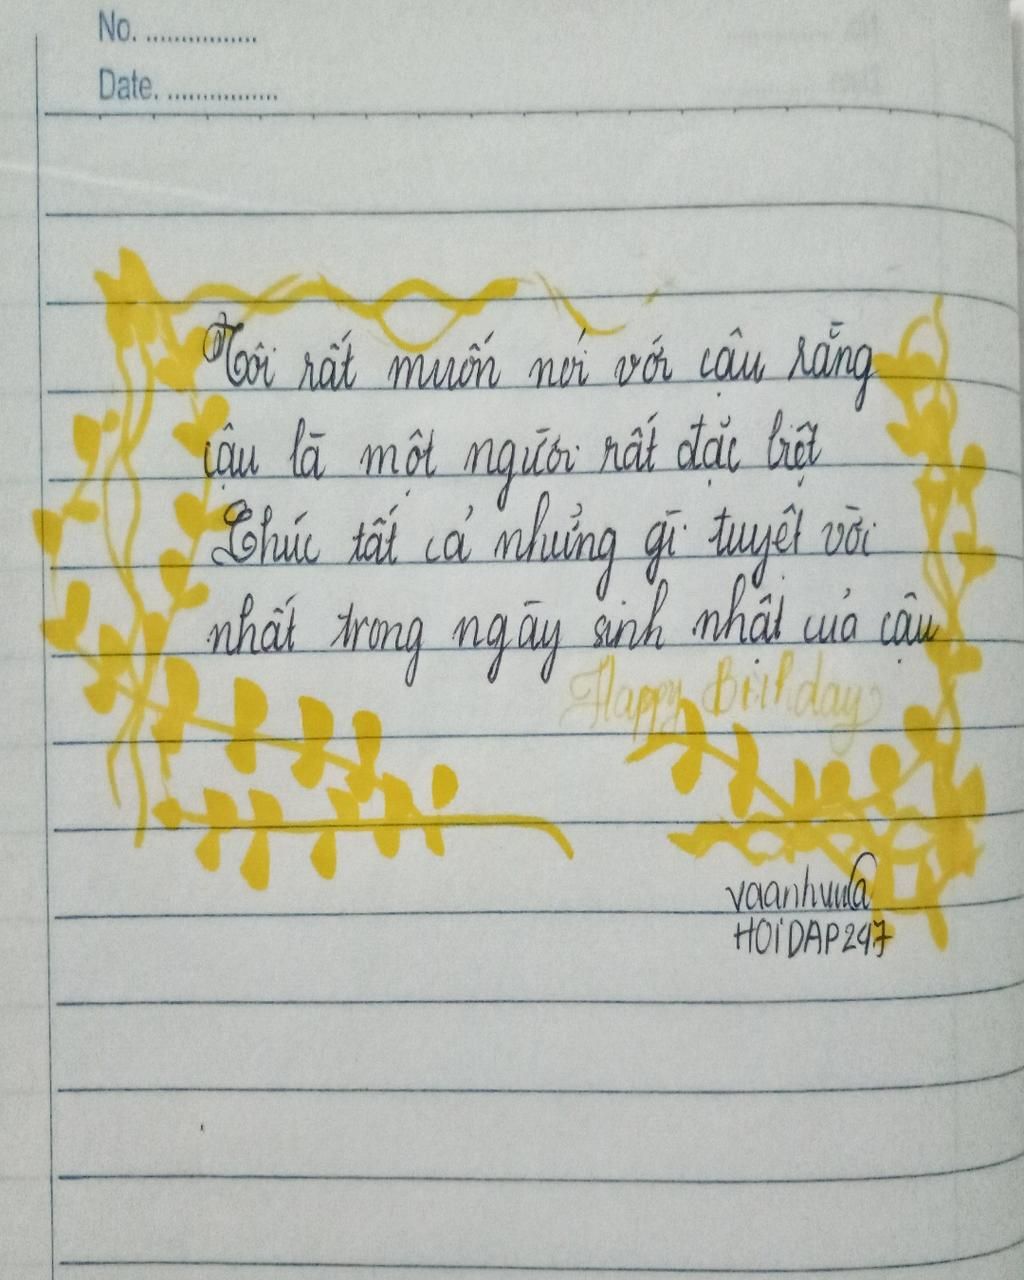 No. ................
Date. ................
Tôi rất muốn nói với cậu rằng
cậu là một người rất đặc biệt
Chúc tất cả những gì tuyệt vời
nhất trong ngày sinh nhật của cậu
Happy Birthday
HOiDAP247